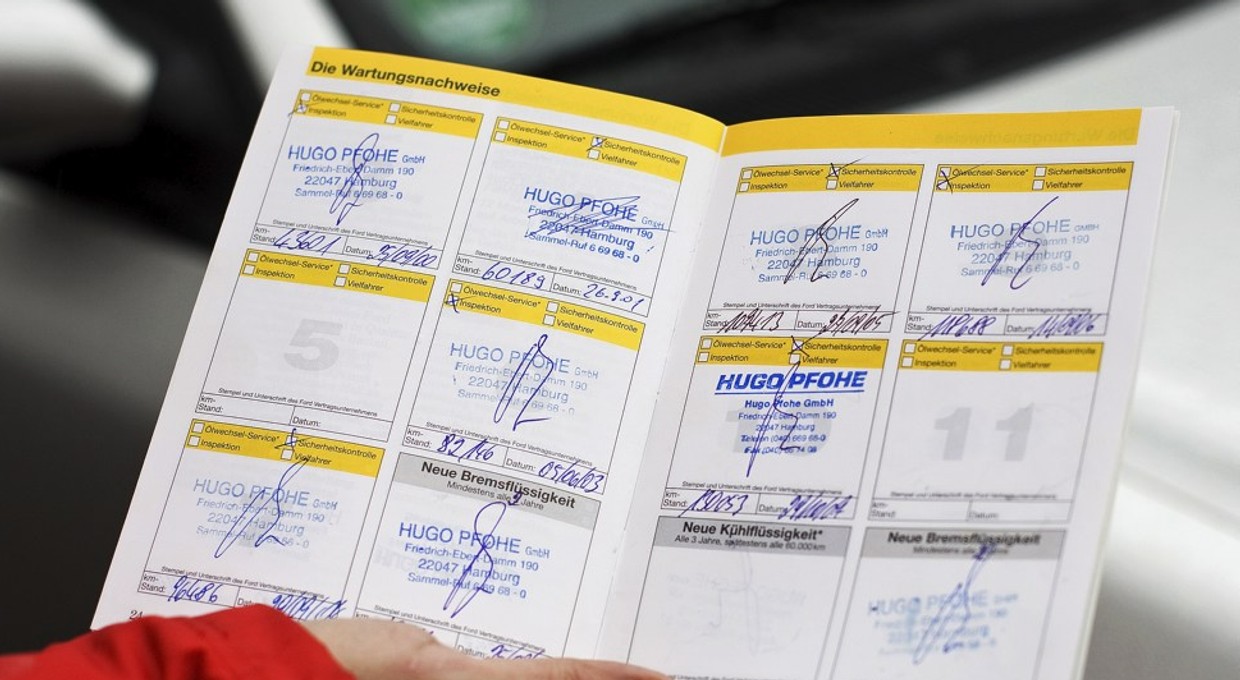 Die Wartungsnachweise
Ölwechsel-Service* Sicherheitskontrolle
Inspektion Vielfahrer
HUGO PFOHE GmbH
Friedrich-Ebert-Damm 190
22047 Hamburg
Sammel-Ruf 6 69 68 - 0
Stempel und Unterschrift des Ford Vertragsunternehmens
km-Stand: 43601 Datum: 25/09/00
Ölwechsel-Service* Sicherheitskontrolle
Inspektion Vielfahrer
HUGO PFOHE GmbH
Friedrich-Ebert-Damm 190
22047 Hamburg
Sammel-Ruf 6 69 68 - 0
Stempel und Unterschrift des Ford Vertragsunternehmens
km-Stand: 60189 Datum: 26.9.01
Ölwechsel-Service* Sicherheitskontrolle
Inspektion Vielfahrer
5
Stempel und Unterschrift des Ford Vertragsunternehmens
km-Stand: Datum:
Ölwechsel-Service* Sicherheitskontrolle
Inspektion Vielfahrer
HUGO PFOHE GmbH
Friedrich-Ebert-Damm 190
22047 Hamburg
Sammel-Ruf 6 69 68 - 0
Stempel und Unterschrift des Ford Vertragsunternehmens
km-Stand: 82146 Datum: 05/06/03
Ölwechsel-Service* Sicherheitskontrolle
Inspektion Vielfahrer
HUGO PFOHE GmbH
Friedrich-Ebert-Damm 190
22047 Hamburg
Sammel-Ruf 6 69 68 - 0
Stempel und Unterschrift des Ford Vertragsunternehmens
km-Stand: 96486
24
Neue Bremsflüssigkeit
Mindestens alle 2 Jahre
HUGO PFOHE GmbH
Friedrich-Ebert-Damm 190
22047 Hamburg
Sammel-Ruf 6 69 68 - 0
Stempel und Unterschrift des Ford Vertragsunternehmens
Datum:
Ölwechsel-Service* Sicherheitskontrolle
Inspektion Vielfahrer
HUGO PFOHE GmbH
Friedrich-Ebert-Damm 190
22047 Hamburg
Sammel-Ruf 6 69 68 - 0
Stempel und Unterschrift des Ford Vertragsunternehmens
km-Stand: 109413 Datum:
Ölwechsel-Service* Sicherheitskontrolle
Inspektion Vielfahrer
HUGO PFOHE GMBH
Friedrich-Ebert-Damm 190
22047 Hamburg
Sammel-Ruf 6 69 68 - 0
Stempel und Unterschrift des Ford Vertragsunternehmens
km-Stand: Datum:
Ölwechsel-Service* Sicherheitskontrolle
Inspektion Vielfahrer
HUGO PFOHE
Hugo Pfohe GmbH
Friedrich-Ebert-Damm 190
22047 Hamburg
Telefon (040) 669 68-0
Fax (040)
Stempel und Unterschrift des Ford Vertragsunternehmens
km-Stand: Datum:
Ölwechsel-Service* Sicherheitskontrolle
Inspektion Vielfahrer
11
Stempel und Unterschrift des Ford Vertragsunternehmens
km-Stand: Datum:
Neue Kühlflüssigkeit*
Alle 3 Jahre, spätestens alle 60.000 km
Neue Bremsflüssigkeit
Mindestens alle 2 Jahre
HUGO PFOHE GmbH
Friedrich-Ebert-Damm 190
22047 Hamburg